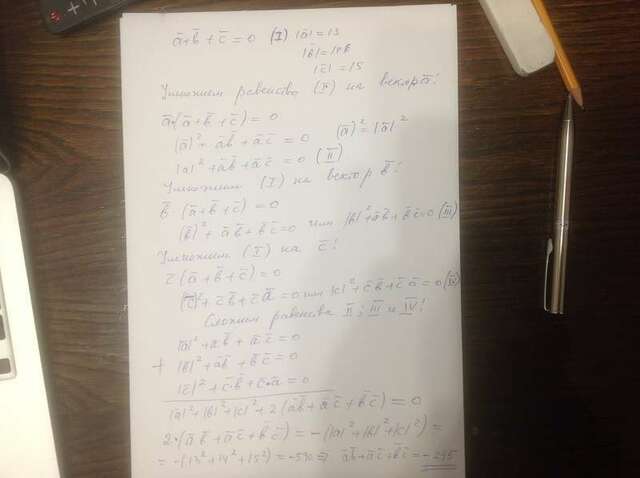 ā+b̄+c̄=0 (I) |ā|=13
|b̄|=14
|c̄|=15
Умножим равенство (I) на вектор ā:
ā·(ā+b̄+c̄)=0
(ā)²+āb̄+āc̄=0 (ā)²=|ā|²
|a|²+āb̄+āc̄=0 (II)
Умножим (I) на вектор b̄:
b̄·(ā+b̄+c̄)=0
(b̄)²+āb̄+b̄c̄=0 или |b|²+āb̄+b̄c̄=0 (III)
Умножим (I) на c̄:
c̄·(ā+b̄+c̄)=0
(c̄)²+c̄b̄+c̄ā=0 или |c|²+c̄b̄+c̄ā=0 (IV)
Сложим равенства II; III и IV:
|a|²+āb̄+āc̄=0
+ |b|²+āb̄+b̄c̄=0
|c|²+c̄b̄+c̄·ā=0
|a|²+|b|²+|c|²+2(āb̄+āc̄+b̄c̄)=0
2·(āb̄+āc̄+b̄c̄)=-(|a|²+|b|²+|c|²)=
=-(13²+14²+15²)=-590⇒ āb̄+āc̄+b̄c̄=-295